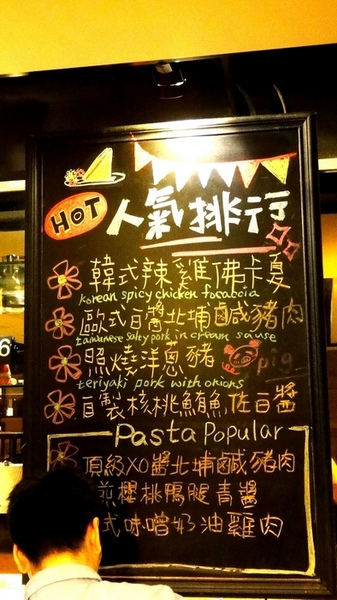 HOT 人氣排行
韓式辣雞佛卡夏
korean spicy chicken focaccia
歐式白醬北埔鹹豬肉
taiwanese salty pork in cream sause
照燒洋蔥豬 pig
teriyaki pork with onions
自製核桃鮪魚佐白醬
Pasta Popular
頂級XO醬北埔鹹豬肉
煎櫻桃鴨腿青醬
式味噌奶油雞肉
6